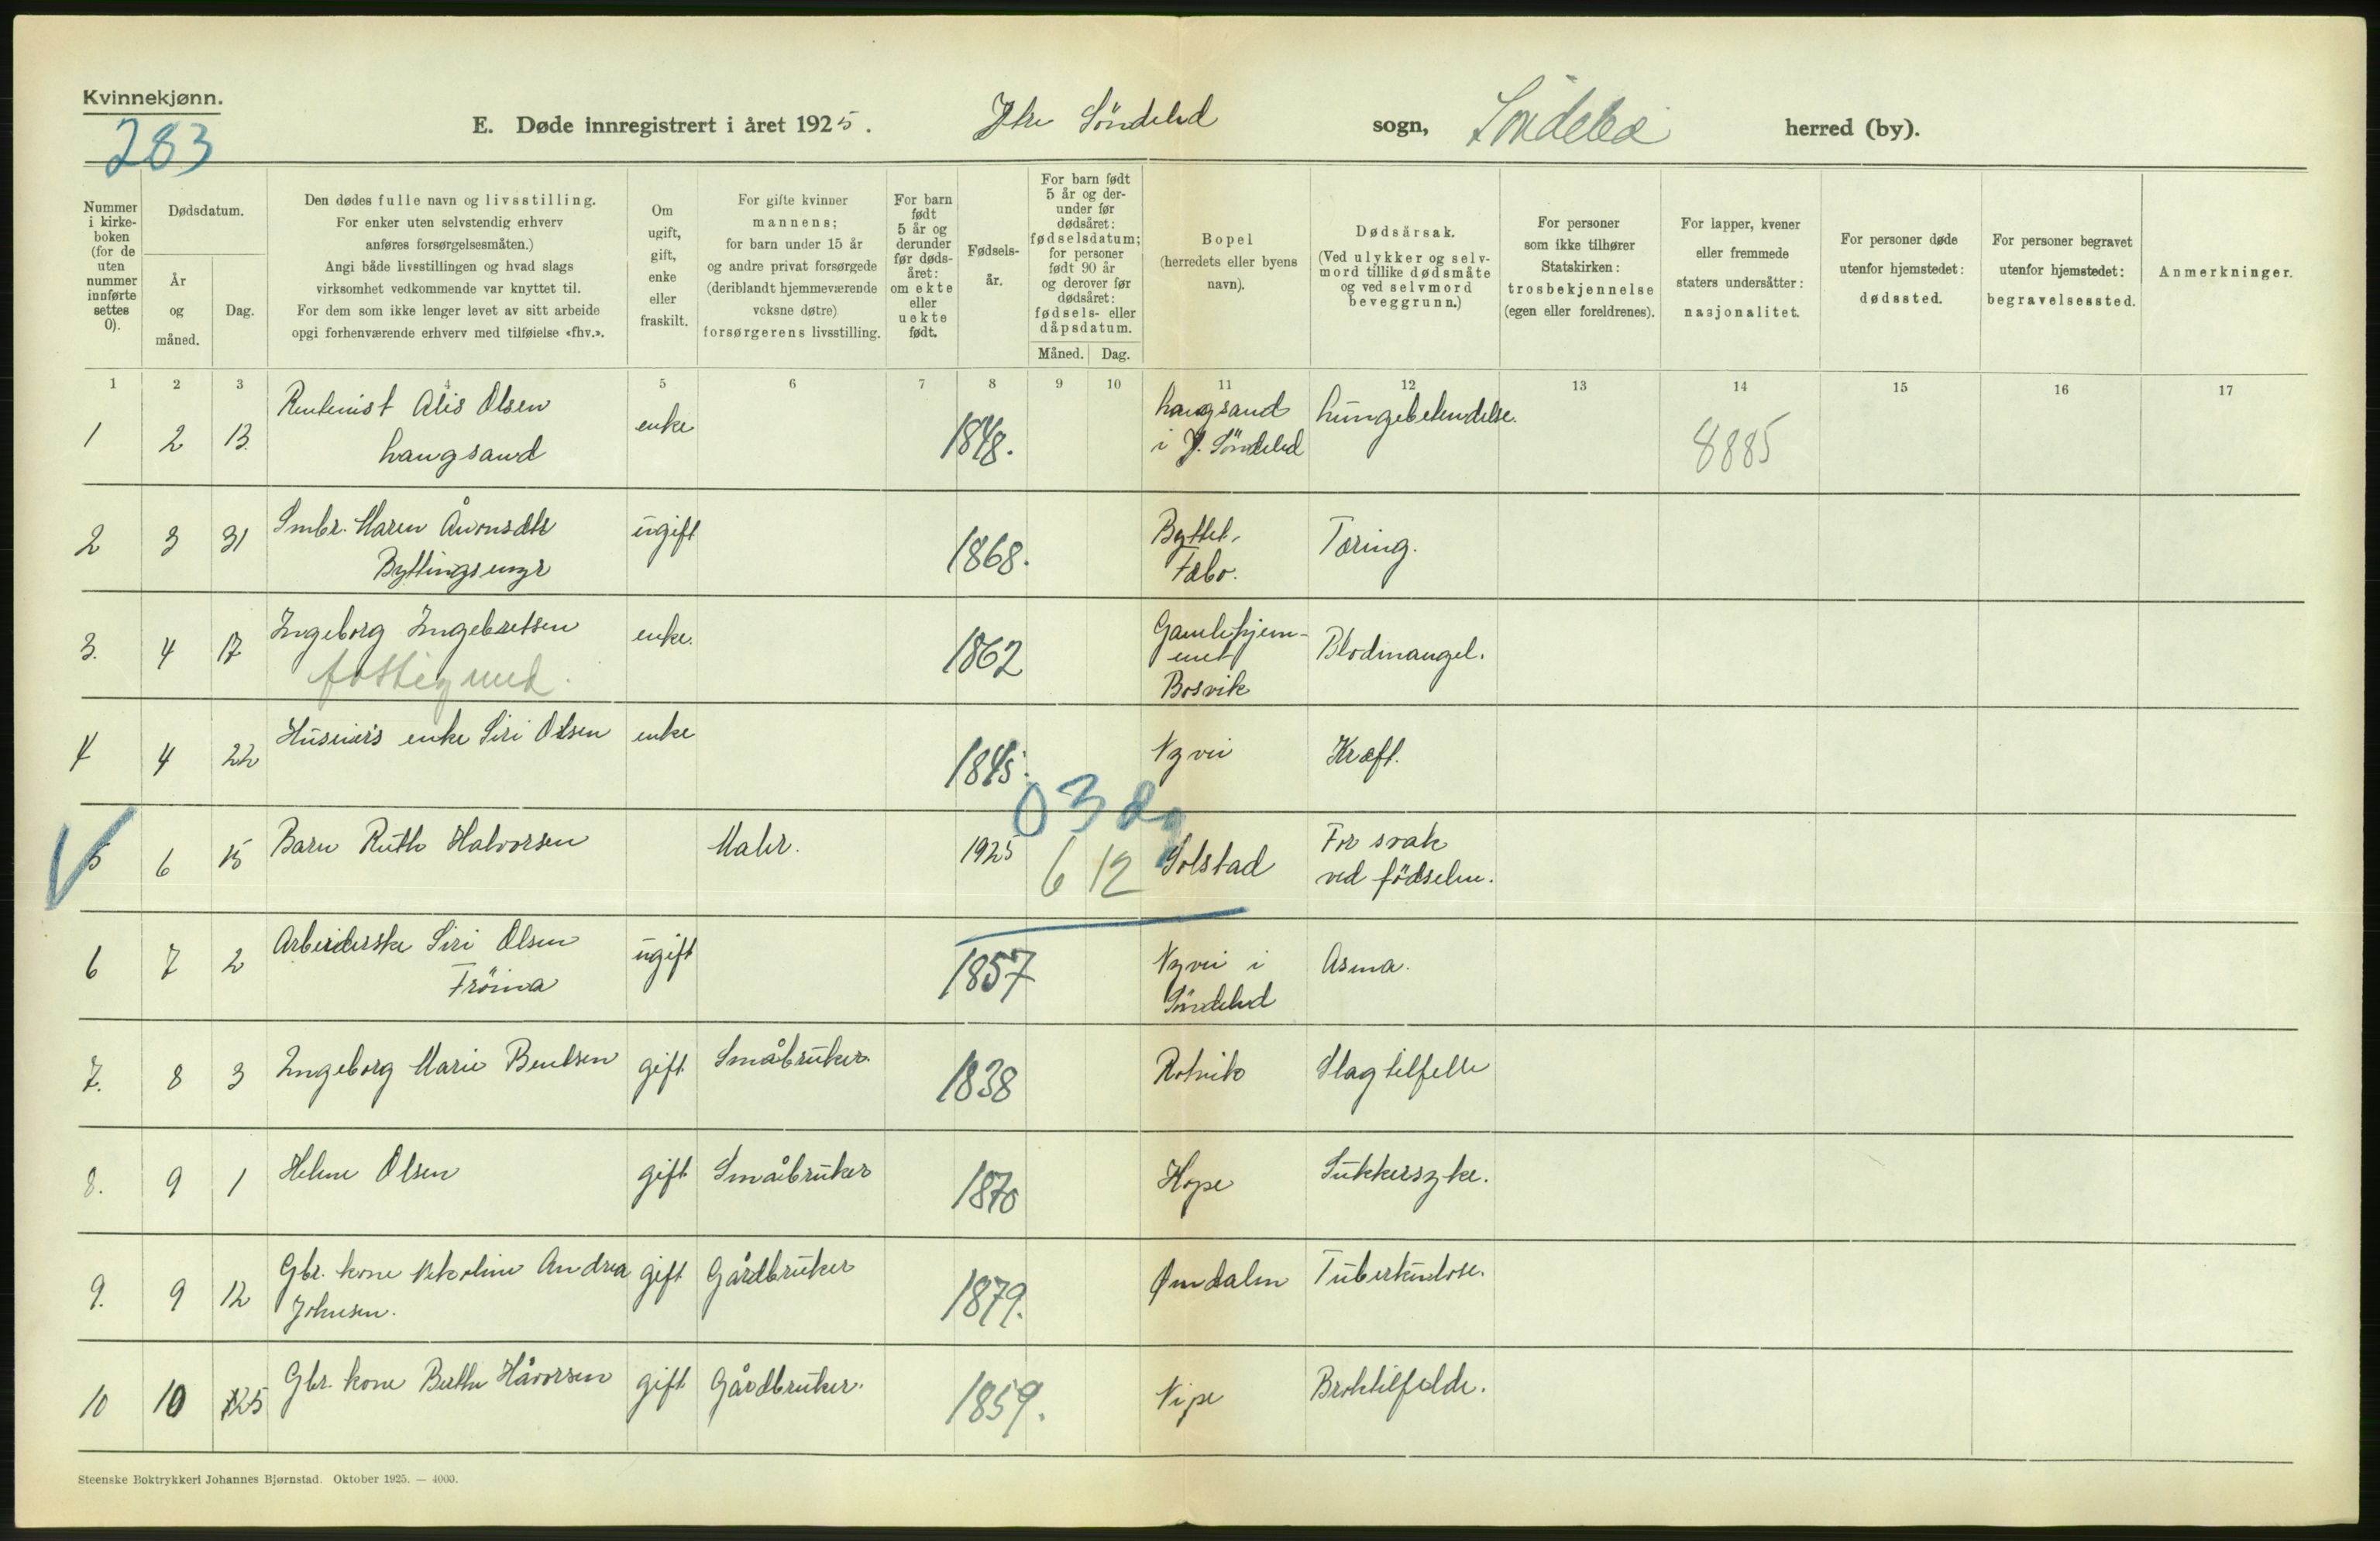 Kvinnekjønn.
283
E. Døde innregistrert i året 1925.
Ytre Söndeled sogn, Söndeled herred (by).
Nummer i kirkeboken (for de uten nummer innførte settes 0).
Dødsdatum.
År og måned.
Dag.
Den dødes fulle navn og livsstilling.
For enker uten selvstendig erhverv
anføres forsørgelsesmåten.)
Angi både livsstillingen og hvad slags
virksomhet vedkommende var knyttet til.
For dem som ikke lenger levet av sitt arbeide
opgi forhenværende erhverv med tilføielse «fhv.».
Om ugift, gift, enke eller fraskilt.
For gifte kvinner
mannens;
for barn under 15 år
og andre privat forsørgede
(deriblandt hjemmeværende
voksne døtre)
forsørgerens livsstilling.
For barn født 5 år og derunder før dødsåret: om ekte eller uekte født.
Fødselsår.
For barn født 5 år og derunder før dødsåret: fødselsdatum; for personer født 90 år og derover før dødsåret: fødsels- eller dåpsdatum.
Måned. Dag.
Bopel
(herredets eller byens
navn).
Dødsårsak.
(Ved ulykker og selv-
mord tillike dødsmåte
og ved selvmord
beveggrunn.)
For personer
som ikke tilhører
Statskirken:
trosbekjennelse
(egen eller foreldrenes).
For lapper, kvener
eller fremmede
staters undersåtter:
nasjonalitet.
For personer døde
utenfor hjemstedet:
dødssted.
For personer begravet
utenfor hjemstedet:
begravelsessted.
Anmerkninger.
1 2 3 4 5 6 7 8 9 10 11 12 13 14 15 16 17
1 2 13. Rentenist Alis Olsen enke 1848. Haugsand Lungebetendelse. 8885
Haugsand i Y. Söndeled
2 3 31 Smbr. Maren Åvonsdtr ugift 1868. Byttet, Tæring.
Byttingsmyr Fæbo.
3. 4 17 Ingeborg Ingebretsen enke. 1862 Gamlehjem- Blodmangel.
fattigund. met
Bosvik
4 4 22 Huseiers enke Siri Olsen enke 1845. Nyvei Kræft.
03 dg
5 6 15 Barn Ruth Halvorsen Matr. 1925 6 12 Solstad For svak
ved födselen.
6 7 2 Arbeiderske Siri Olsen ugift 1857 Nyvei i Asma.
Fröina Söndeled
7. 8 3 Ingeborg Marie Bentsen gift Småbruker. 1838 Rotvik Slagtilfelle
8. 9 1 Helene Olsen gift Småbruker 1870 Hope Sukkersyke.
9. 9 12 Gbr. kone Nikoline Andrea gift Gårdbruker 1879. Ømdalen Tuberkulose.
Johnsen.
10 10 25 Gbr. kone Berthe Håvorsen gift Gårdbruker. 1859. Nipe Broktilfelde.
Steenske Boktrykkeri Johannes Bjørnstad. Oktober 1925. — 4000.